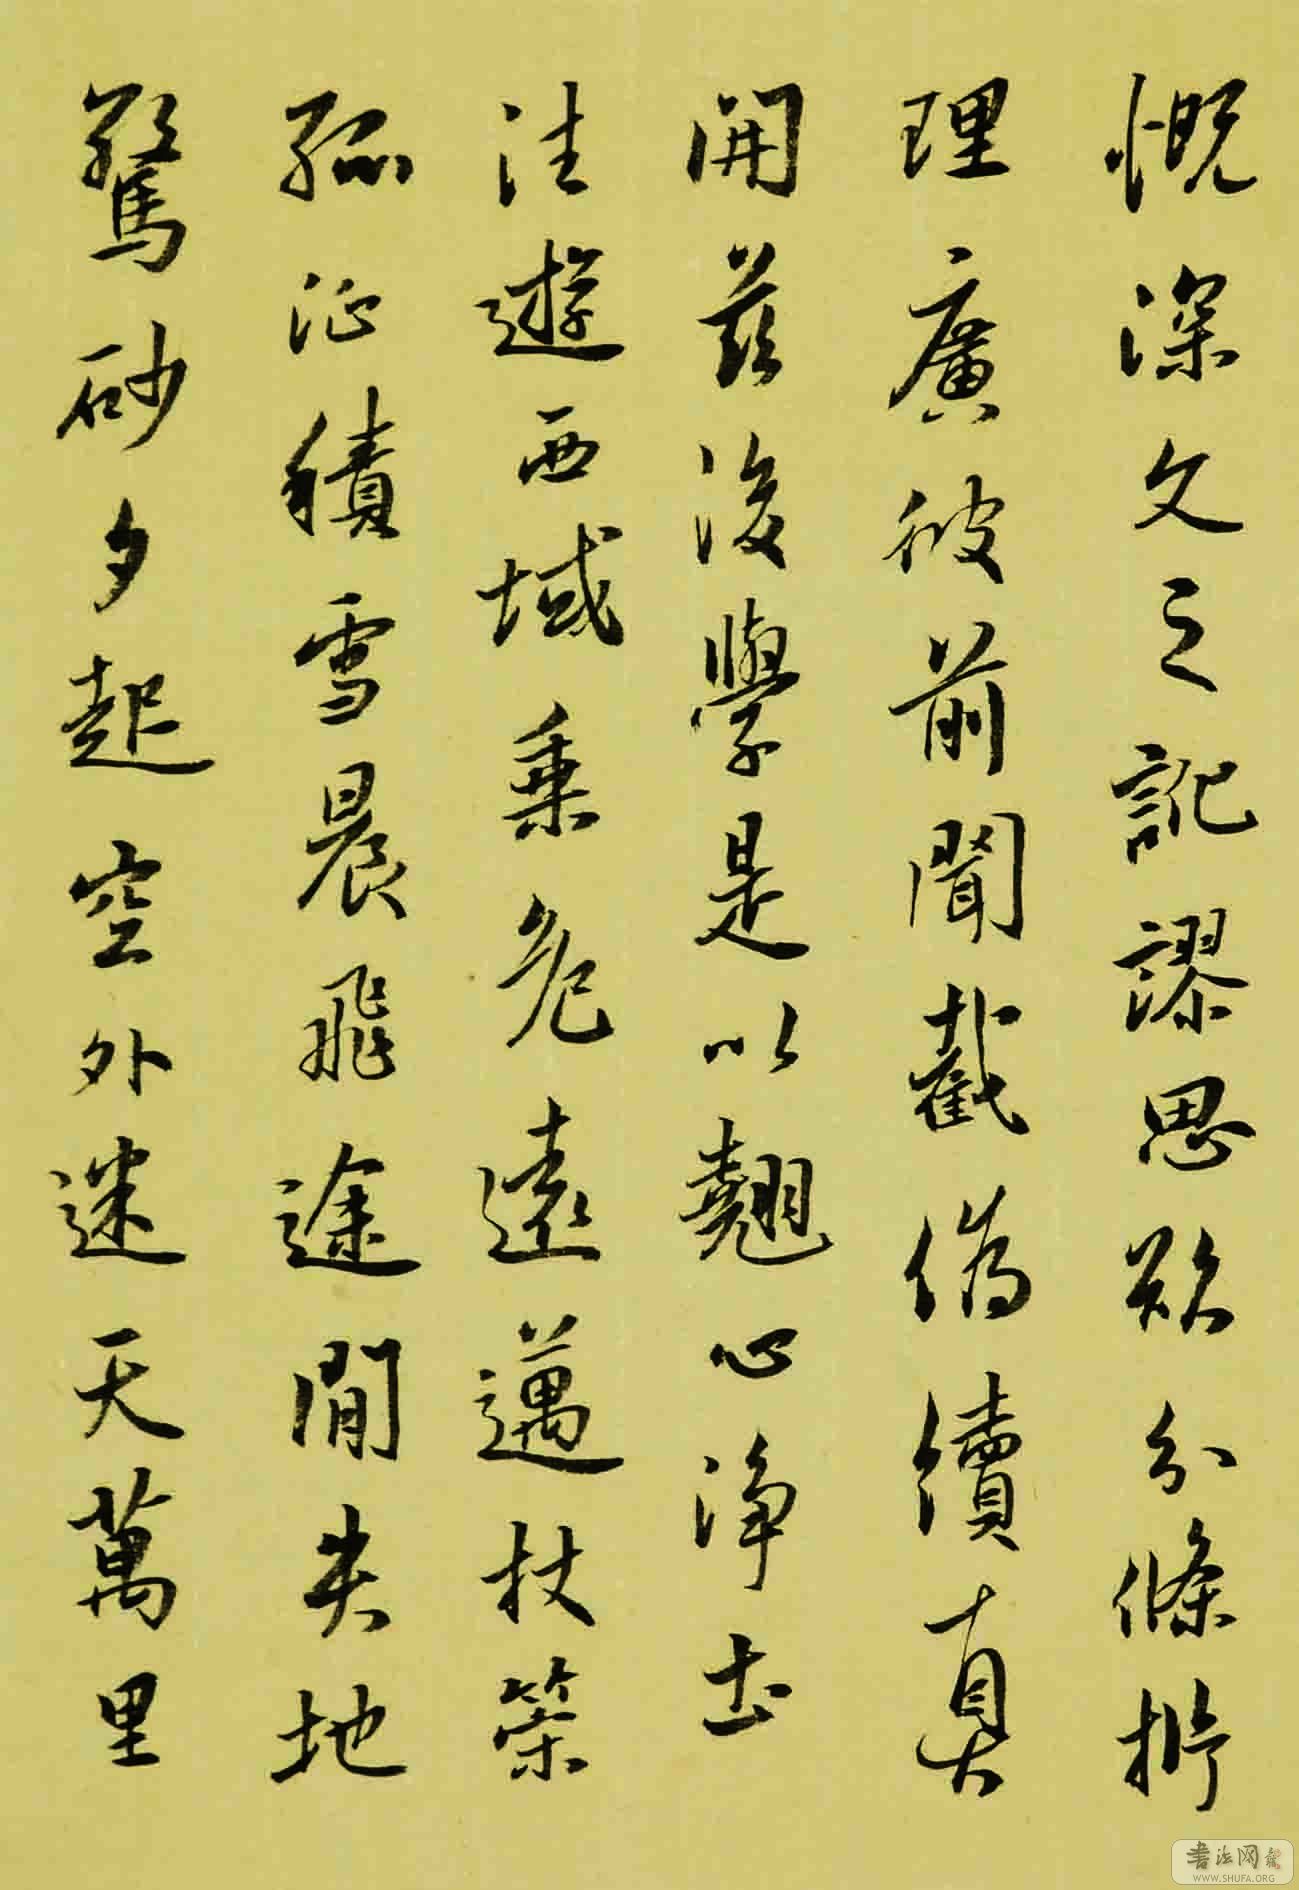 慨深文之訛謬思欲分條析
理廣彼前聞截偽續真
開茲後學是以翹心淨土
往遊西域乘危遠邁杖策
孤征積雪晨飛途閒失地
驚砂夕起空外迷天萬里
書法网
WWW.SHUFA.ORG